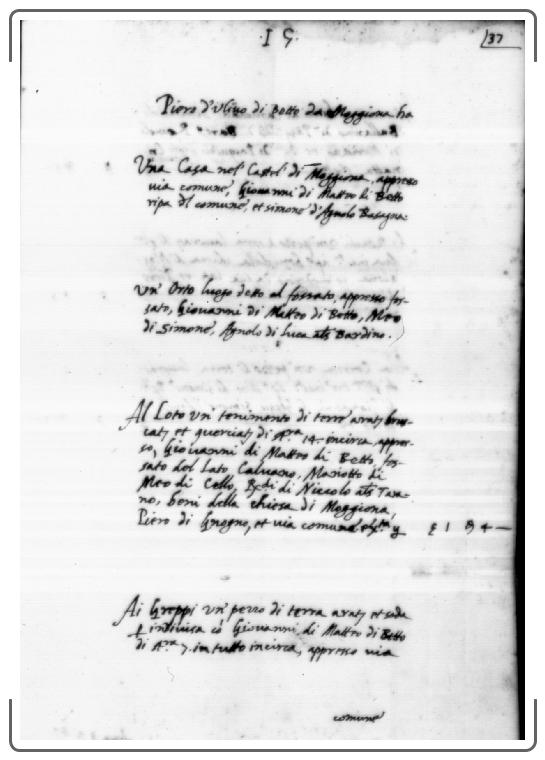 15.
37
Piero d'Ulivo di Betto da Moggiona ha
Una Casa nel Castel' di Moggiona, appresso
via comune, Giovanni di Matteo di Betto
ripa del comune, et simone d'Agnolo
Un' Orto luogo detto al fossato, appresso fos-
sato, Giovanni di Matteo di Betto, Meo
di Simone, Agnolo di Luca als Bardino.
Al Loto un' tenimento di terre arat;
et di st.ra 14. incirca, appres-
so, Giovanni di Matteo di Betto, fos-
sato del Lato, Calvano, Mariotto di
Meo di Cello, di Niccolo als
no, beni della chiesa di Moggiona,
Piero di Gnogno, et via comune
Ai Greppi un' pezzo di terra arat; et soda
indivisa cō Giovanni di Matteo di Betto
di st.ra 7. in tutto incirca, appresso via
comune